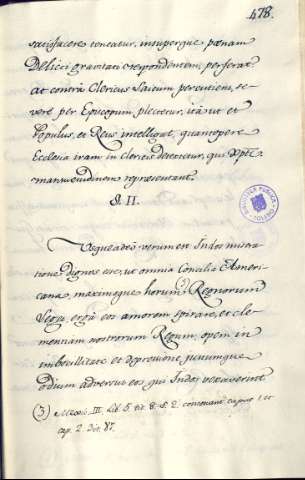 478.
satisfacere teneatur, insuperque pœnam
Delicti gravitati correspondentem, perferat.
At contrà Clericus Laicum percutiens, se-
verè per Episcopum plectetur, ità ut et
Populus, et Reus intelligat, quantopere
Ecclesia iram in clericis detestetur, qui Xpti
mansuetudinem representant.
§. II.
Usque adeò verum est Indos misera-
tione dignos esse, ut omnia Concilia Ameri-
cana, maximeque horum (3) Regnorum
Leges, ergà eos amorem spirare, et cle-
mentiam nostrorum Regum, opem in
imbecillitate et depressione, summumque
odium adversus eos qui Indos vexaverint
(3) Mexic. III. Lib. 5. tit. 8. §. 2.
cap. 2. Tit. 87.
BIBLIOTECA PUBLICA
TOLEDO